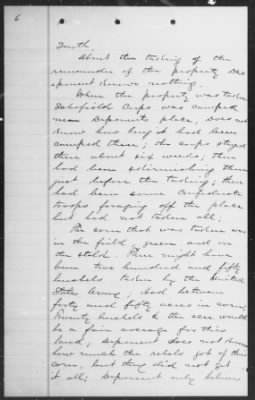 6
Smith.
About the taking of the
remainder of the property Dep-
onent knows nothing.
When the property was taken
Schofield Corps was camped
near Deponents place, does not
know how long it had been
camped there; the corps stayed
there about six weeks; there
had been skirmishing there
just before the taking; there
had been some Confederate
troops foraging off the place
but had not taken all;
The corn that was taken was
in the field, green and on
the stalk. There might have
been two hundred and fifty
bushels taken by the United
States Army; had between
forty and fifty acres in corn;
Twenty bushels to the acre would
be a fair average for this
land; Deponent does not know
how much the rebels got of this
corn, but they did not get
it all; Deponent only